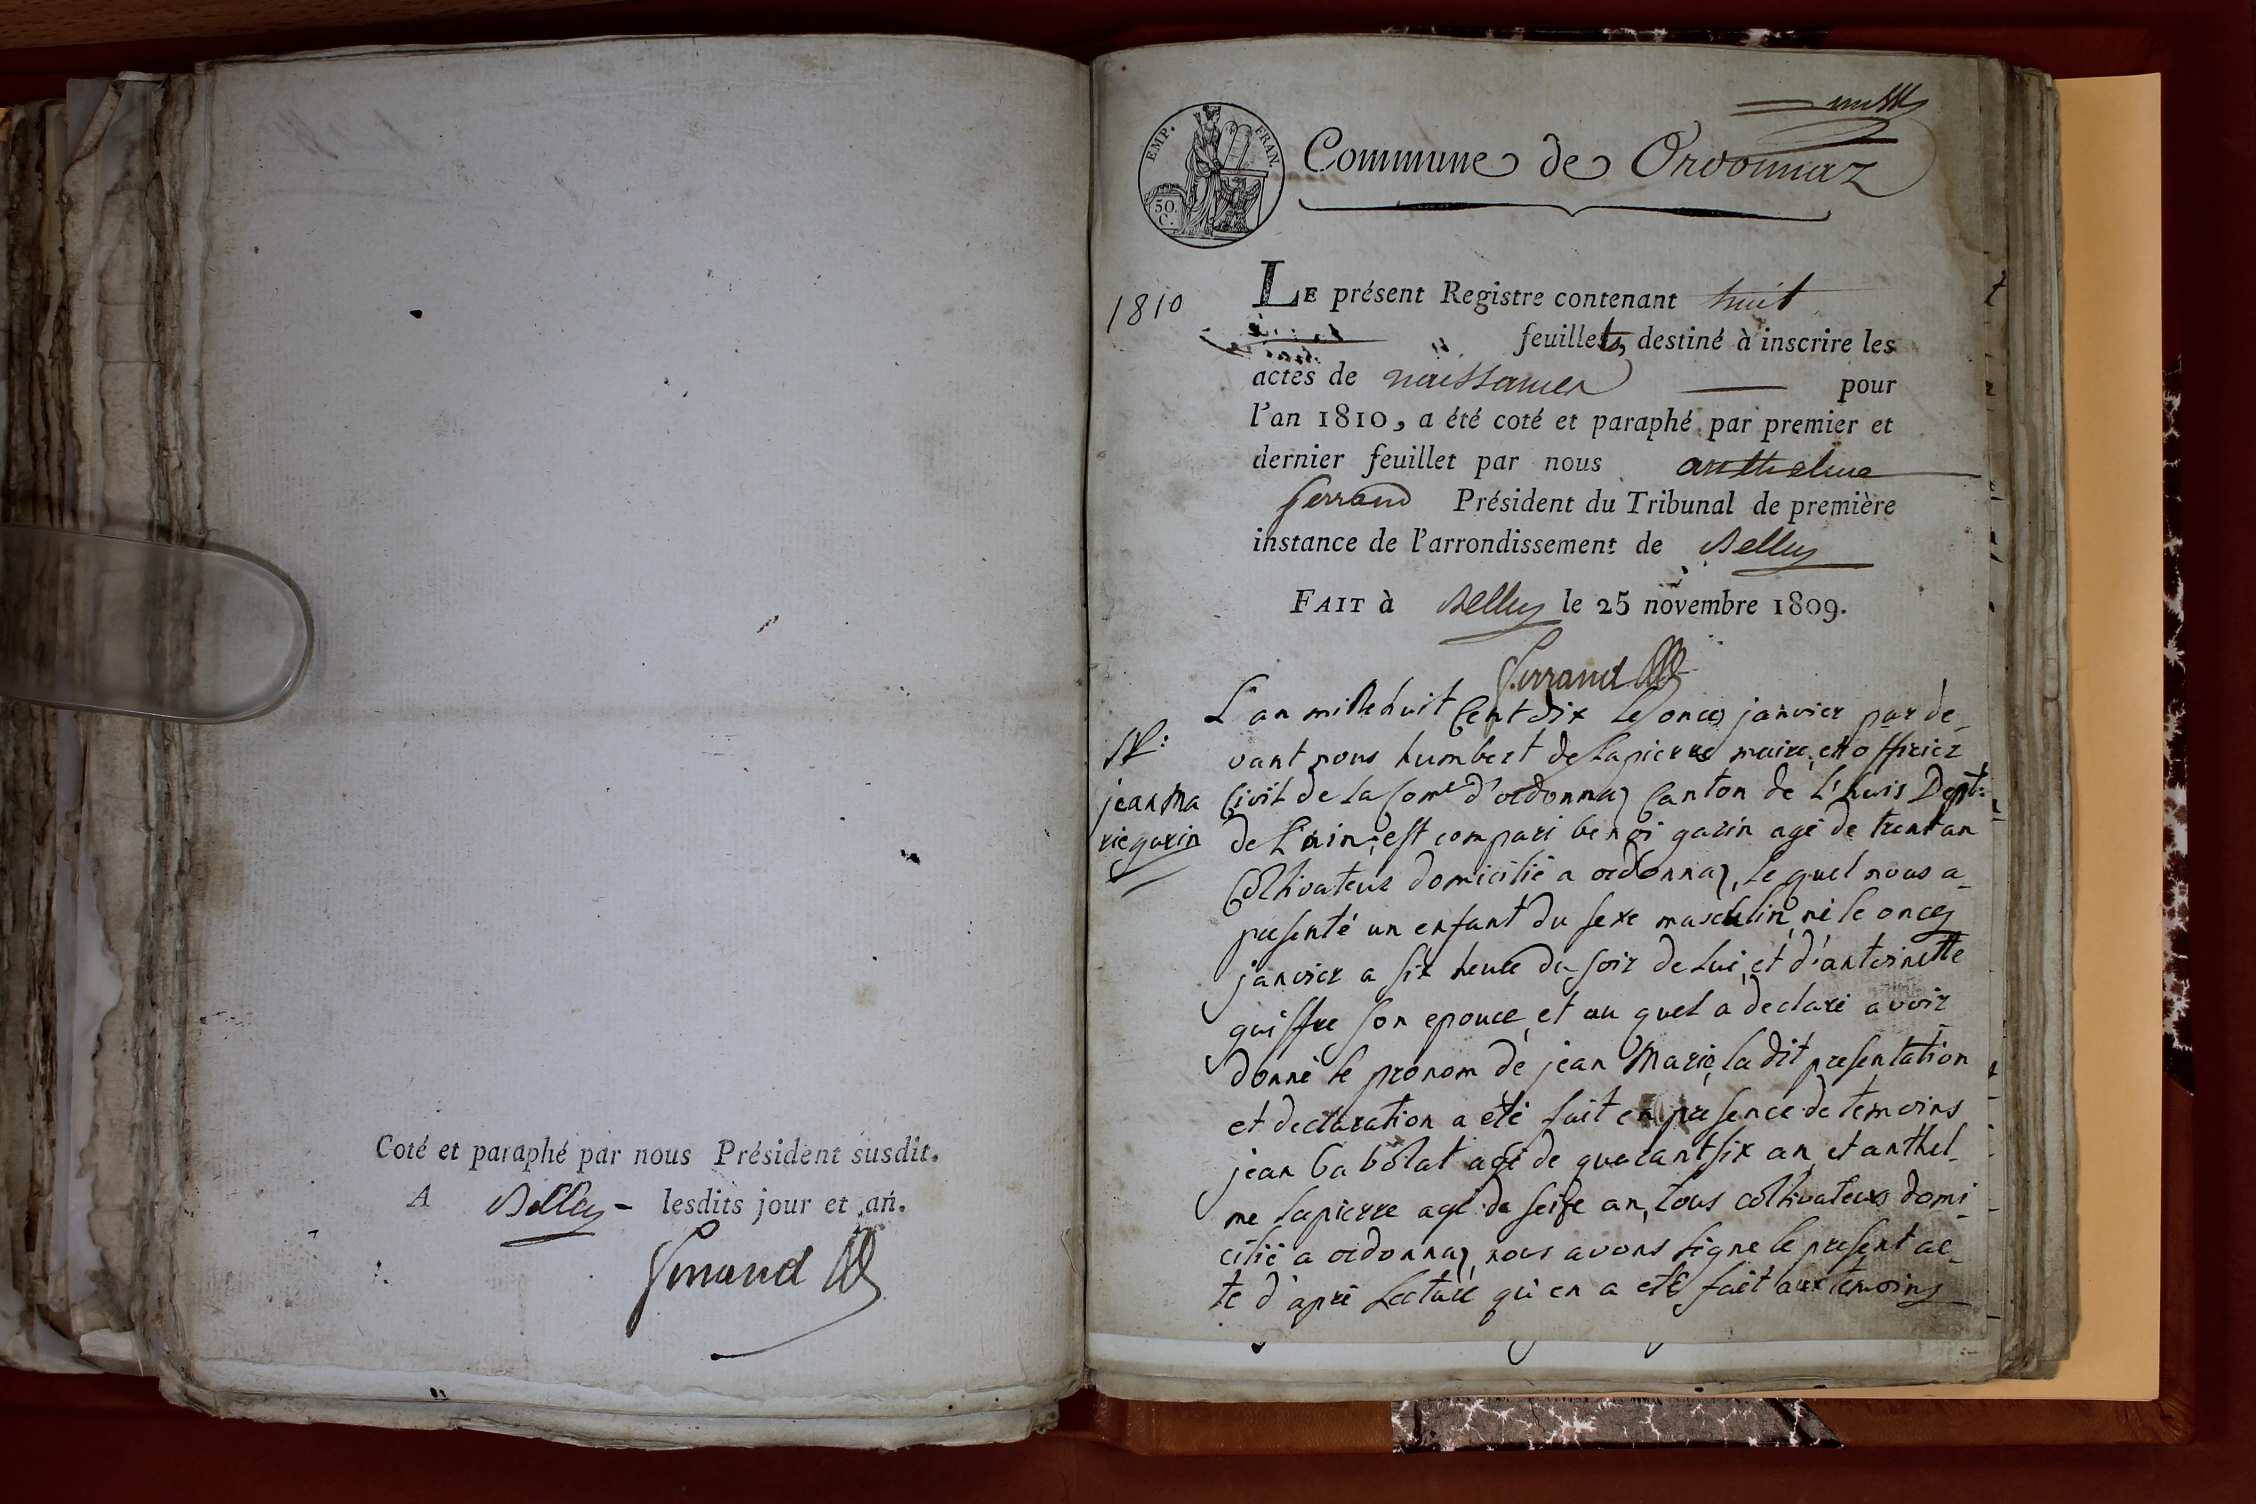 Coté et paraphé par nous Président susdit.
A Belley - lesdits jour et an.
Gerrand
EMP. FRAN.
50.
C.
Commune de Ordonnaz
1810
LE présent Registre contenant huit
feuillets, destiné à inscrire les
actes de naissances pour
l'an 1810, a été coté et paraphé par premier et
dernier feuillet par nous anthelme
Gerrand Président du Tribunal de première
instance de l'arrondissement de Belley
FAIT à Belley le 25 novembre 1809.
Gerrand
L'an mille huit Cent dix le onces janvier par de-
vant nous humbert de lapierre maire et officier
Civil de la Com.e d'ordonnaz Canton de L'huis Dept:
de L'ain, est compari benoi garin agé de trent an
Coltivateur domicilié a ordonnaz, le quel nous a
presenté un enfant du sexe masculin né le onces
janvier a six heure du soir de lui et d'antoinette
guiffre son epouce et au quel a declaré avoir
donné le prénom de jean Marie, la dit presentation
et declaration a été fait en presence de temoins
jean babolat agé de quarant six an et anthel-
me lapierre agé de seize an, tous coltivateurs domi-
cilié a ordonnaz nous avons signe le present ac-
te d'apré lecture qu'en a eté fait aux temoins
N.o:
jean Ma
rie garin